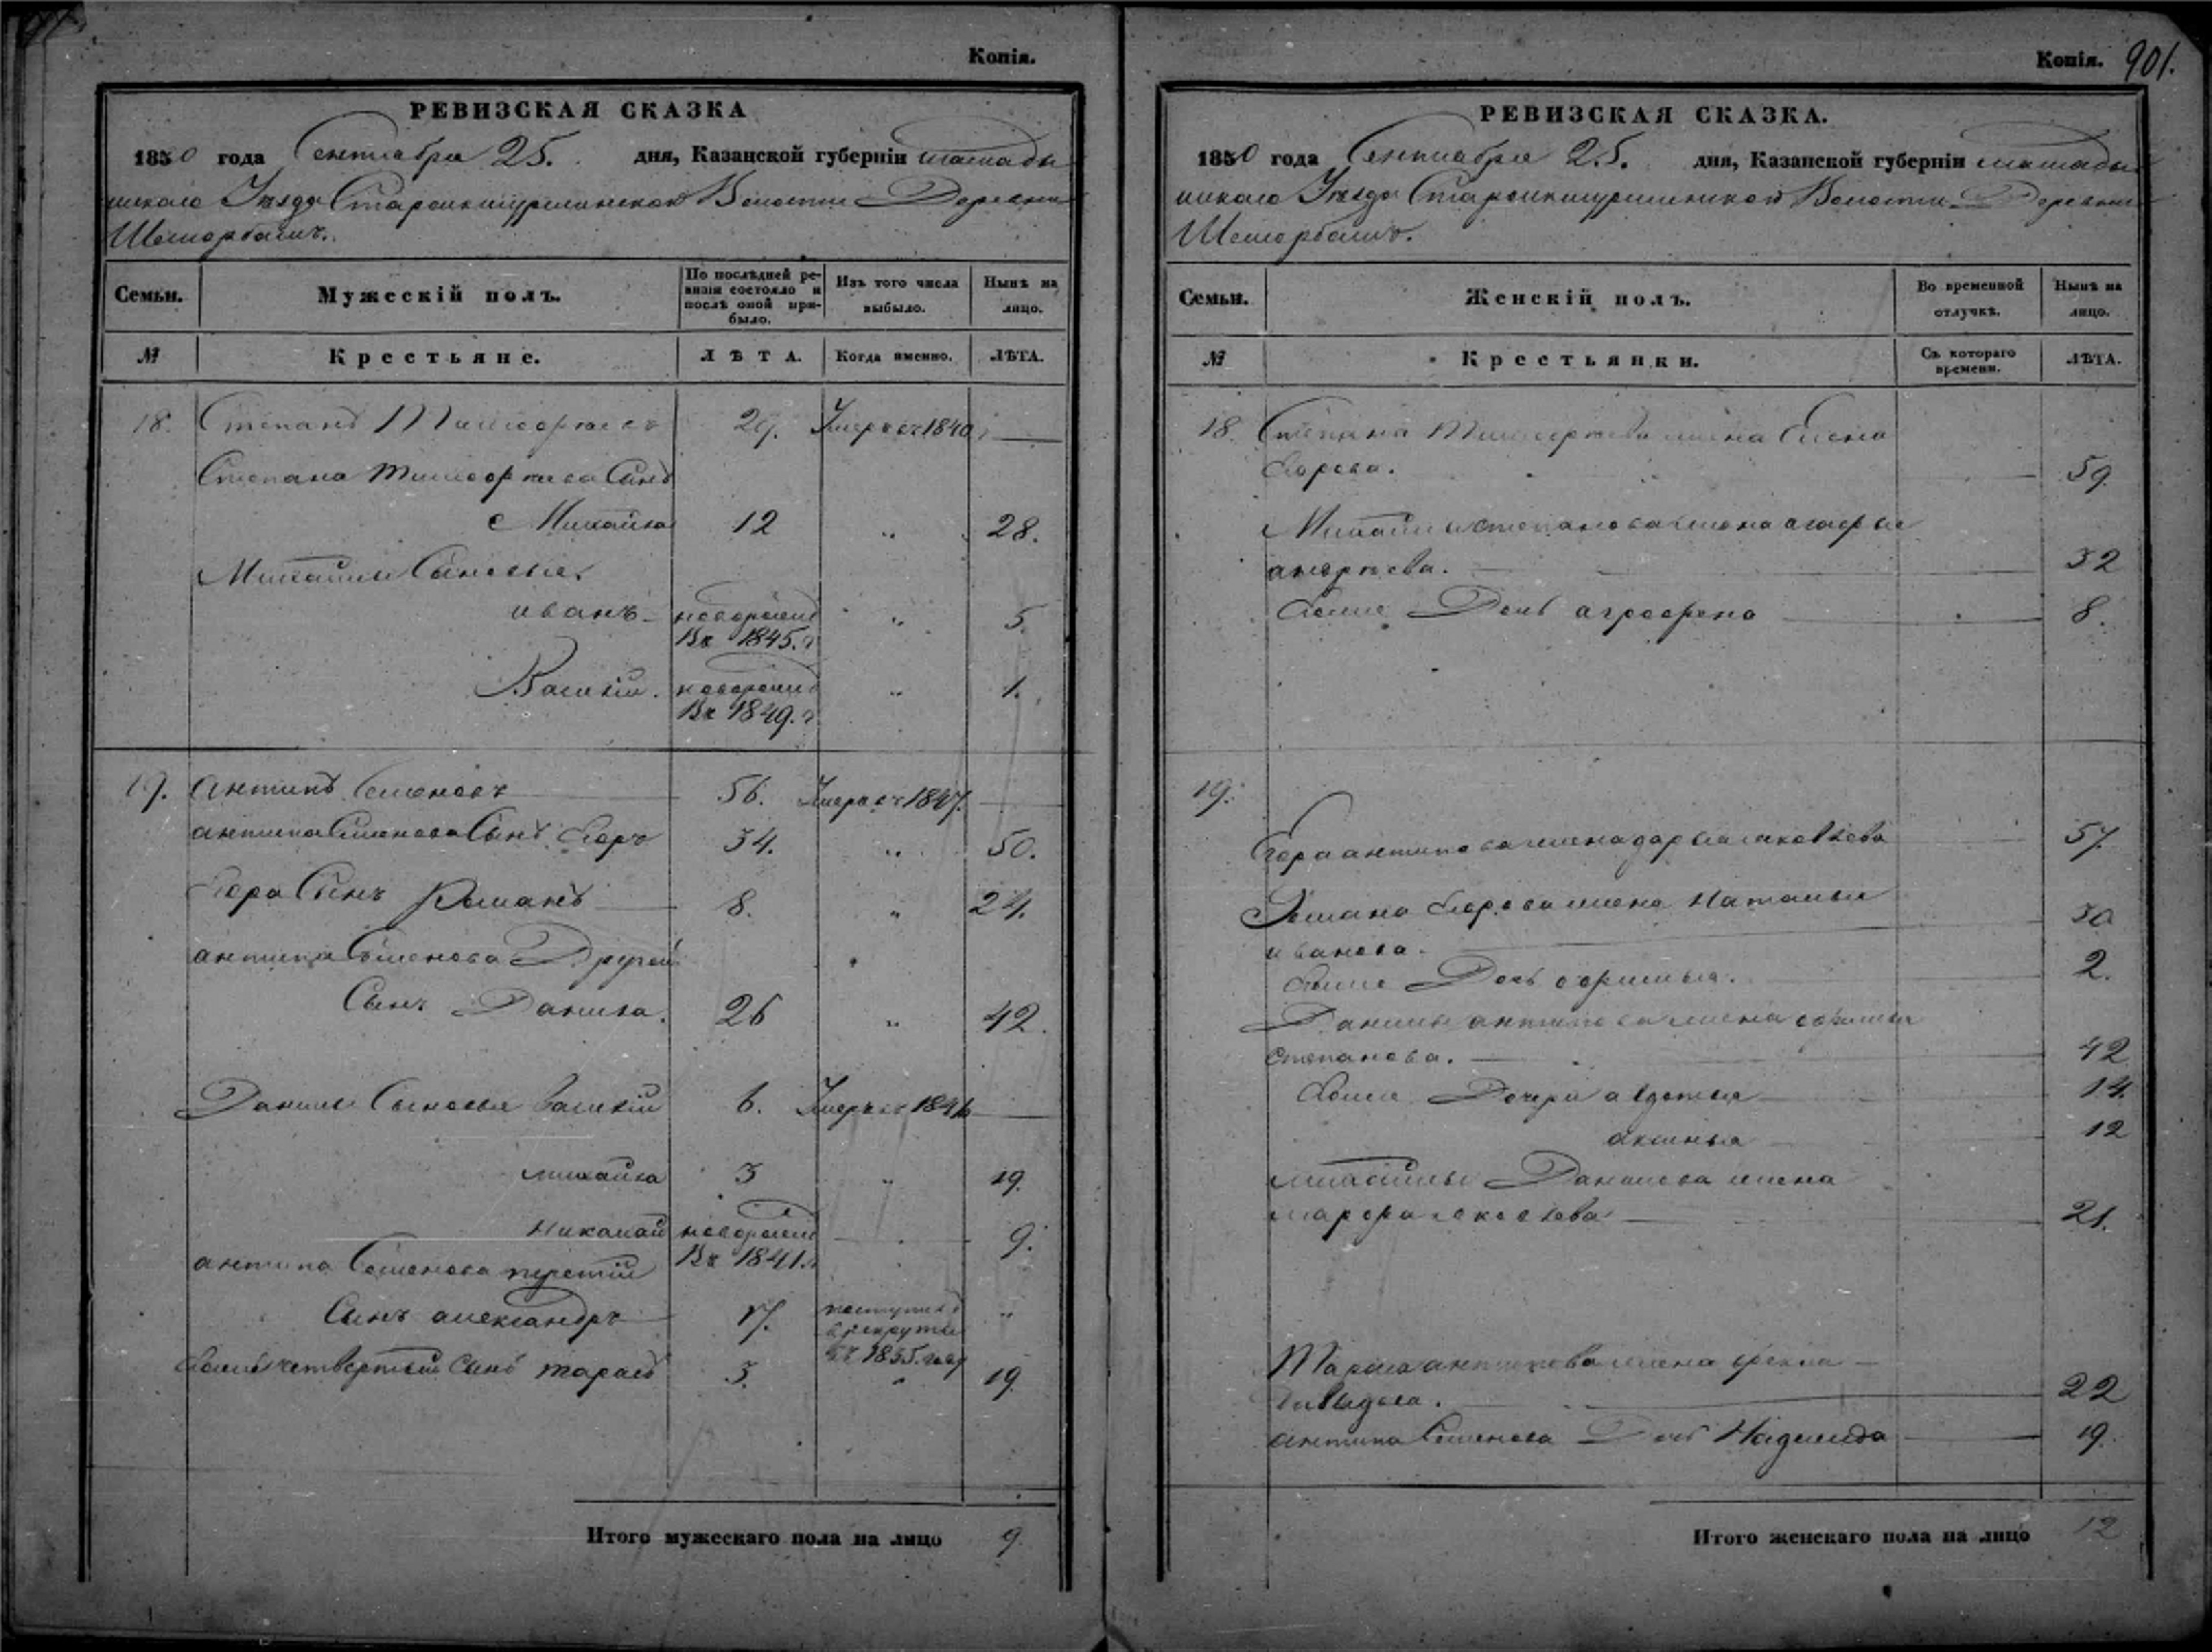 Копія.
РЕВИЗСКАЯ СКАЗКА
1850 года Сентября 25. дня, Казанской губерніи мамады
шскаго Уезда Староикшурминской Волости Деревни
Шеморбашъ.
Семьи.
Мужескій полъ.
По послѣдней ре-
визіи состояло и
послѣ оной при-
было.
Изъ того числа
выбыло.
Нынѣ на
лицо.
№
Крестьяне.
ЛѢТА.
Когда именно.
ЛѢТА.
18. Степанъ Тимофеевъ 29. Умеръ въ 1840
Степана Тимофеева Сынъ
Михайла 12 " 28.
Михайлы Сыновья.
иванъ новорожд " 5.
Въ 1845. г
Василій. новорожд " 1.
Въ 1849. г
19. антипъ Семеновъ 56. Умеръ въ 1847.
антипа Семенова Сынъ Егоръ 34. " 50.
Егора Сынъ Романъ 8. " 24.
антипа Семенова Другой
Сынъ Данила. 26 " 42.
Данилы Сыновья Василій 6. Умеръ въ 1846
михайла 3 " 19.
Николай новорожд 9.
Въ 1841. г
антипа Семенова третій
Сынъ александръ 17. поступилъ "
в рекруты
въ 1855. году
Его же четвертый Сынъ тарасъ 3. " 19.
Итого мужескаго пола на лицо 9.
Копія. 901.
РЕВИЗСКАЯ СКАЗКА.
1850 года Сентября 25. дня, Казанской губерніи мамады
шскаго Уезда Староикшурминской Волости Деревни
Шеморбашъ.
Семьи.
Женскій полъ.
Во временной
отлучкѣ.
Нынѣ на
лицо.
№
Крестьянки.
Съ котораго
времени.
ЛѢТА.
18. Степана Тимофеева жена Елена
Егорова. 59.
Михайлы степанова жена агафья
андреева. 32
Его же Дочь аграфена 8.
19.
Егора антипова жена дарья яковлева 57.
Романа Егорова жена Наталья
иванова. 30
Его же Дочь офимья. 2.
Данилы антипова жена офимья
степанова. 42
Его же Дочери авдотья 14.
аксинья 12
михайлы Данилова жена
марфа яковлева 21.
Тараса антипова жена фекла
давыдова. 22
антипа Семенова Дочь Надежда 19.
Итого женскаго пола на лицо 12